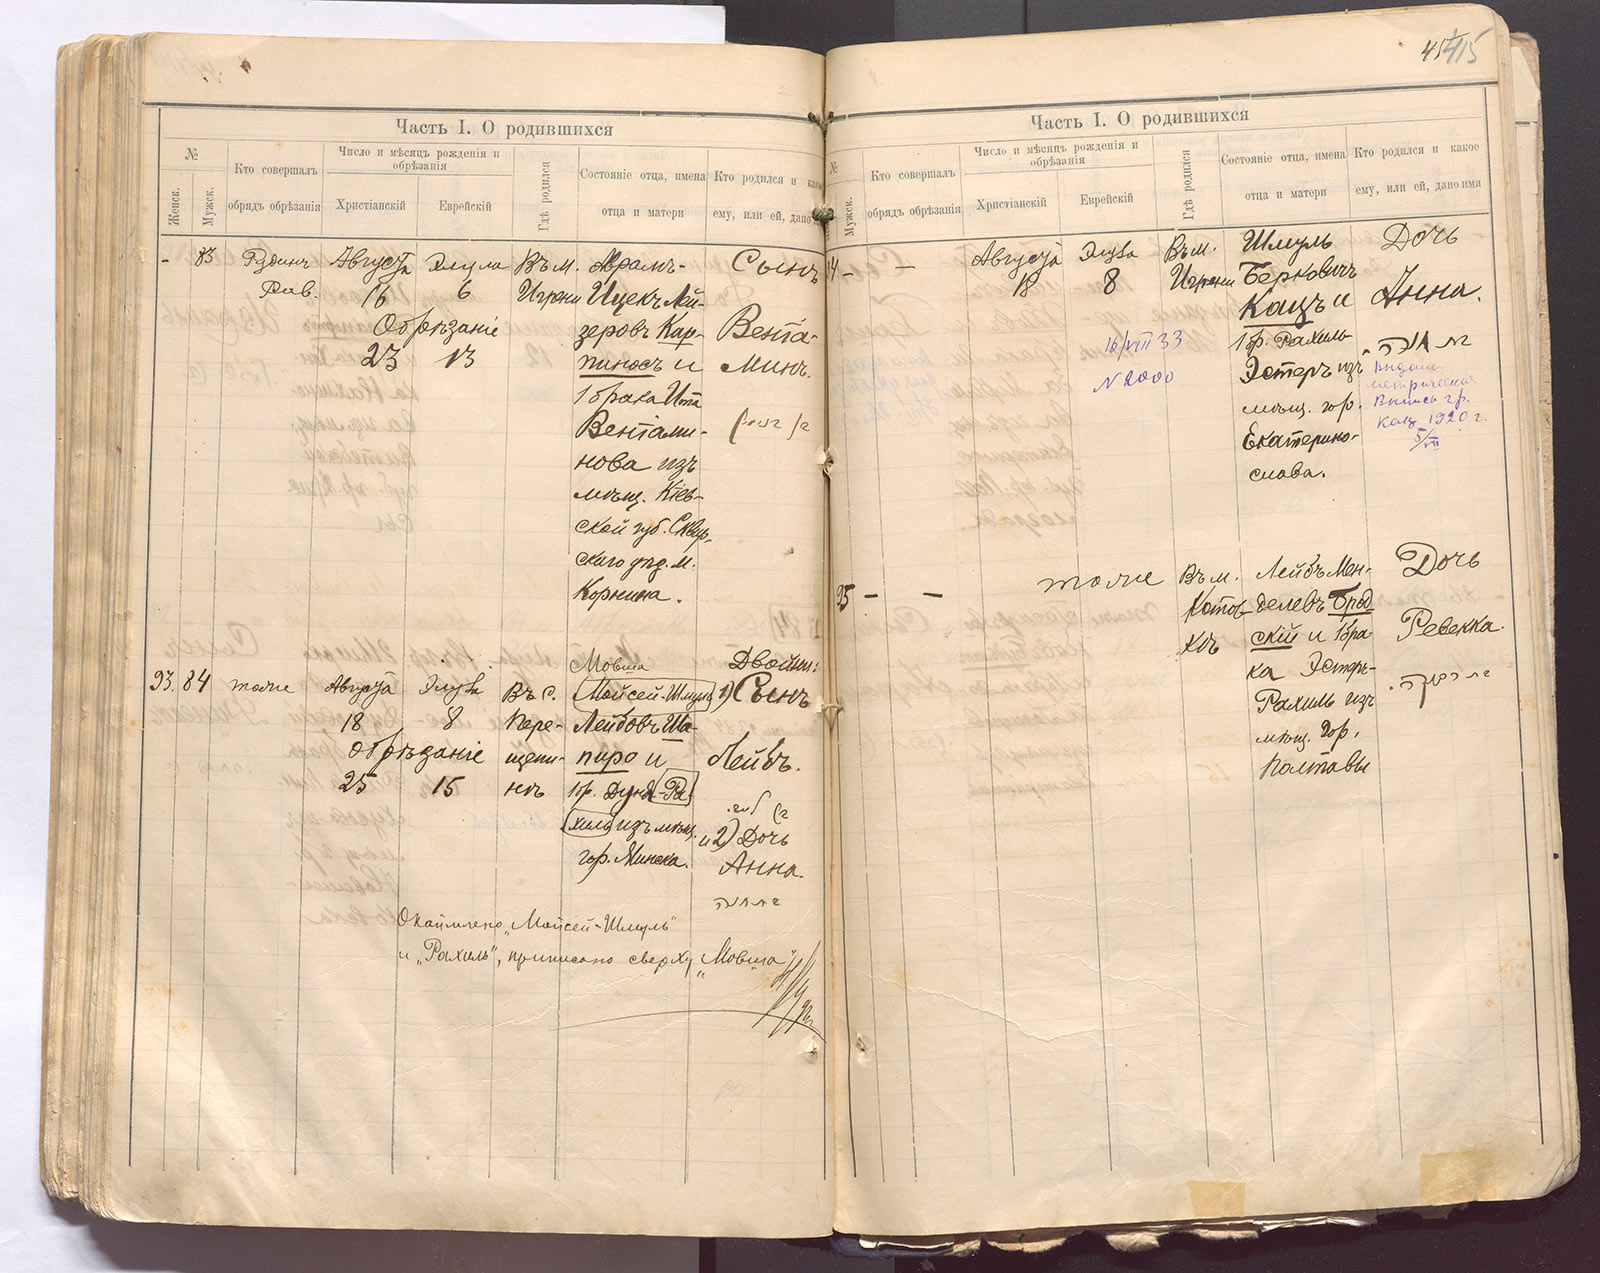 415
Часть I. О родившихся
№
Женск.
Мужск.
Кто совершалъ
обрядъ обрѣзанія
Число и мѣсяцъ рожденія и
обрѣзанія
Христіанскій
Еврейскій
Гдѣ родился
Состояніе отца, имена
отца и матери
Кто родился и
ему, или ей, дано
-
83
Рудинъ
Рав.
Августа
16
Обрѣзаніе
23
Элула
6
13
Въ м.
Игрени
Абрамъ-
Ицекъ Лей-
зеровъ Кар-
пиносъ и
1 брака Ита
Веніами-
нова изъ
мѣщ. Кіев-
ской губ. Сквир-
скаго уѣзд. м.
Корнина.
Сынъ
Веніа-
минъ.
93.
84
тоже
Августа
18
обрѣзаніе
25
Элула
8
15
Въ с.
Пере-
щепи-
нѣ
Мовша
Мойсей-Шмуль
Лейбовъ Ша-
пиро и
1 бр. Дуня-Ра-
хиль изъ мѣщ.
гор. Минска.
Двойни:
1) Сынъ
Лейбъ.
и 2) Дочь
Анна.
חנה
Окаймлено „Мойсей-Шмуль"
и „Рахиль", приписано сверху „Мовша"
Часть I. О родившихся
№
Мужск.
Кто совершалъ
обрядъ обрѣзанія
Число и мѣсяцъ рожденія и
обрѣзанія
Христіанскій
Еврейскій
Гдѣ родился
Состояніе отца, имена
отца и матери
Кто родился и какое
ему, или ей, дано имя
94
-
-
Августа
18
Элула
8
Въ м.
Игрени
Шмуль
Берковичъ
Кацъ и
1 бр. Рахиль-
Эстеръ изъ
мѣщ. гор.
Екатерино-
слава.
16/VIII 33
N 2000
Дочь
Анна.
חנה
Выдана
метрическая
Выпись гр.
Кац 1920 г.
5/VII
95
-
-
тоже
Въ м.
Котов-
кѣ
Лейбъ Мен-
делевъ Брод
скій и 1 бра-
ка Эстеръ-
Рахиль изъ
мѣщ. гор.
Полтавы
Дочь
Ревекка.
רבקה